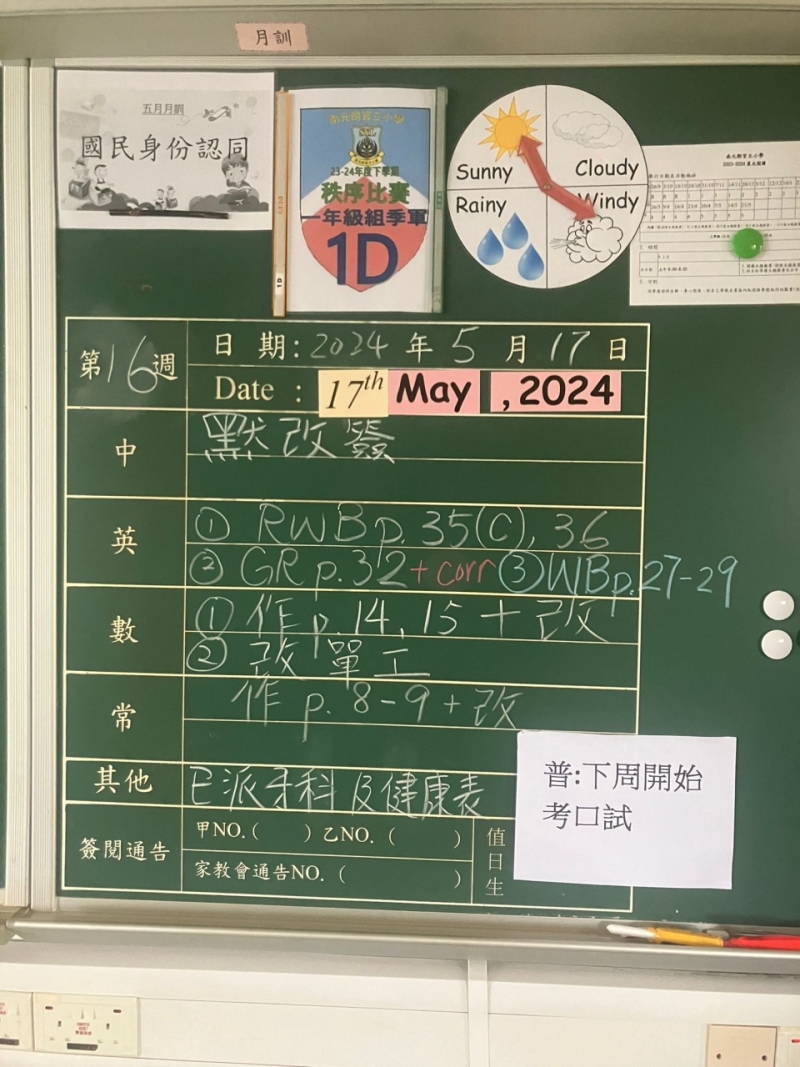 月訓
五月月訓
國民身份認同
南元朗官立小學
23-24年度下學期
秩序比賽
一年級組季軍
1D
1D
Sunny
Cloudy
Rainy
Windy
第16週
日期:2024年5月17日
Date : 17th May , 2024
中
默改簽
英
① RWB p. 35(C), 36
② GR p.32 + corr ③ WB p.27-29
數
① 作 p.14, 15 + 改
② 改單工
常
作 p. 8-9 + 改
其他
已派牙科及健康表
簽閱通告
甲NO.( ) 乙NO.( )
家教會通告NO.( )
值日生
普:下周開始
考口試